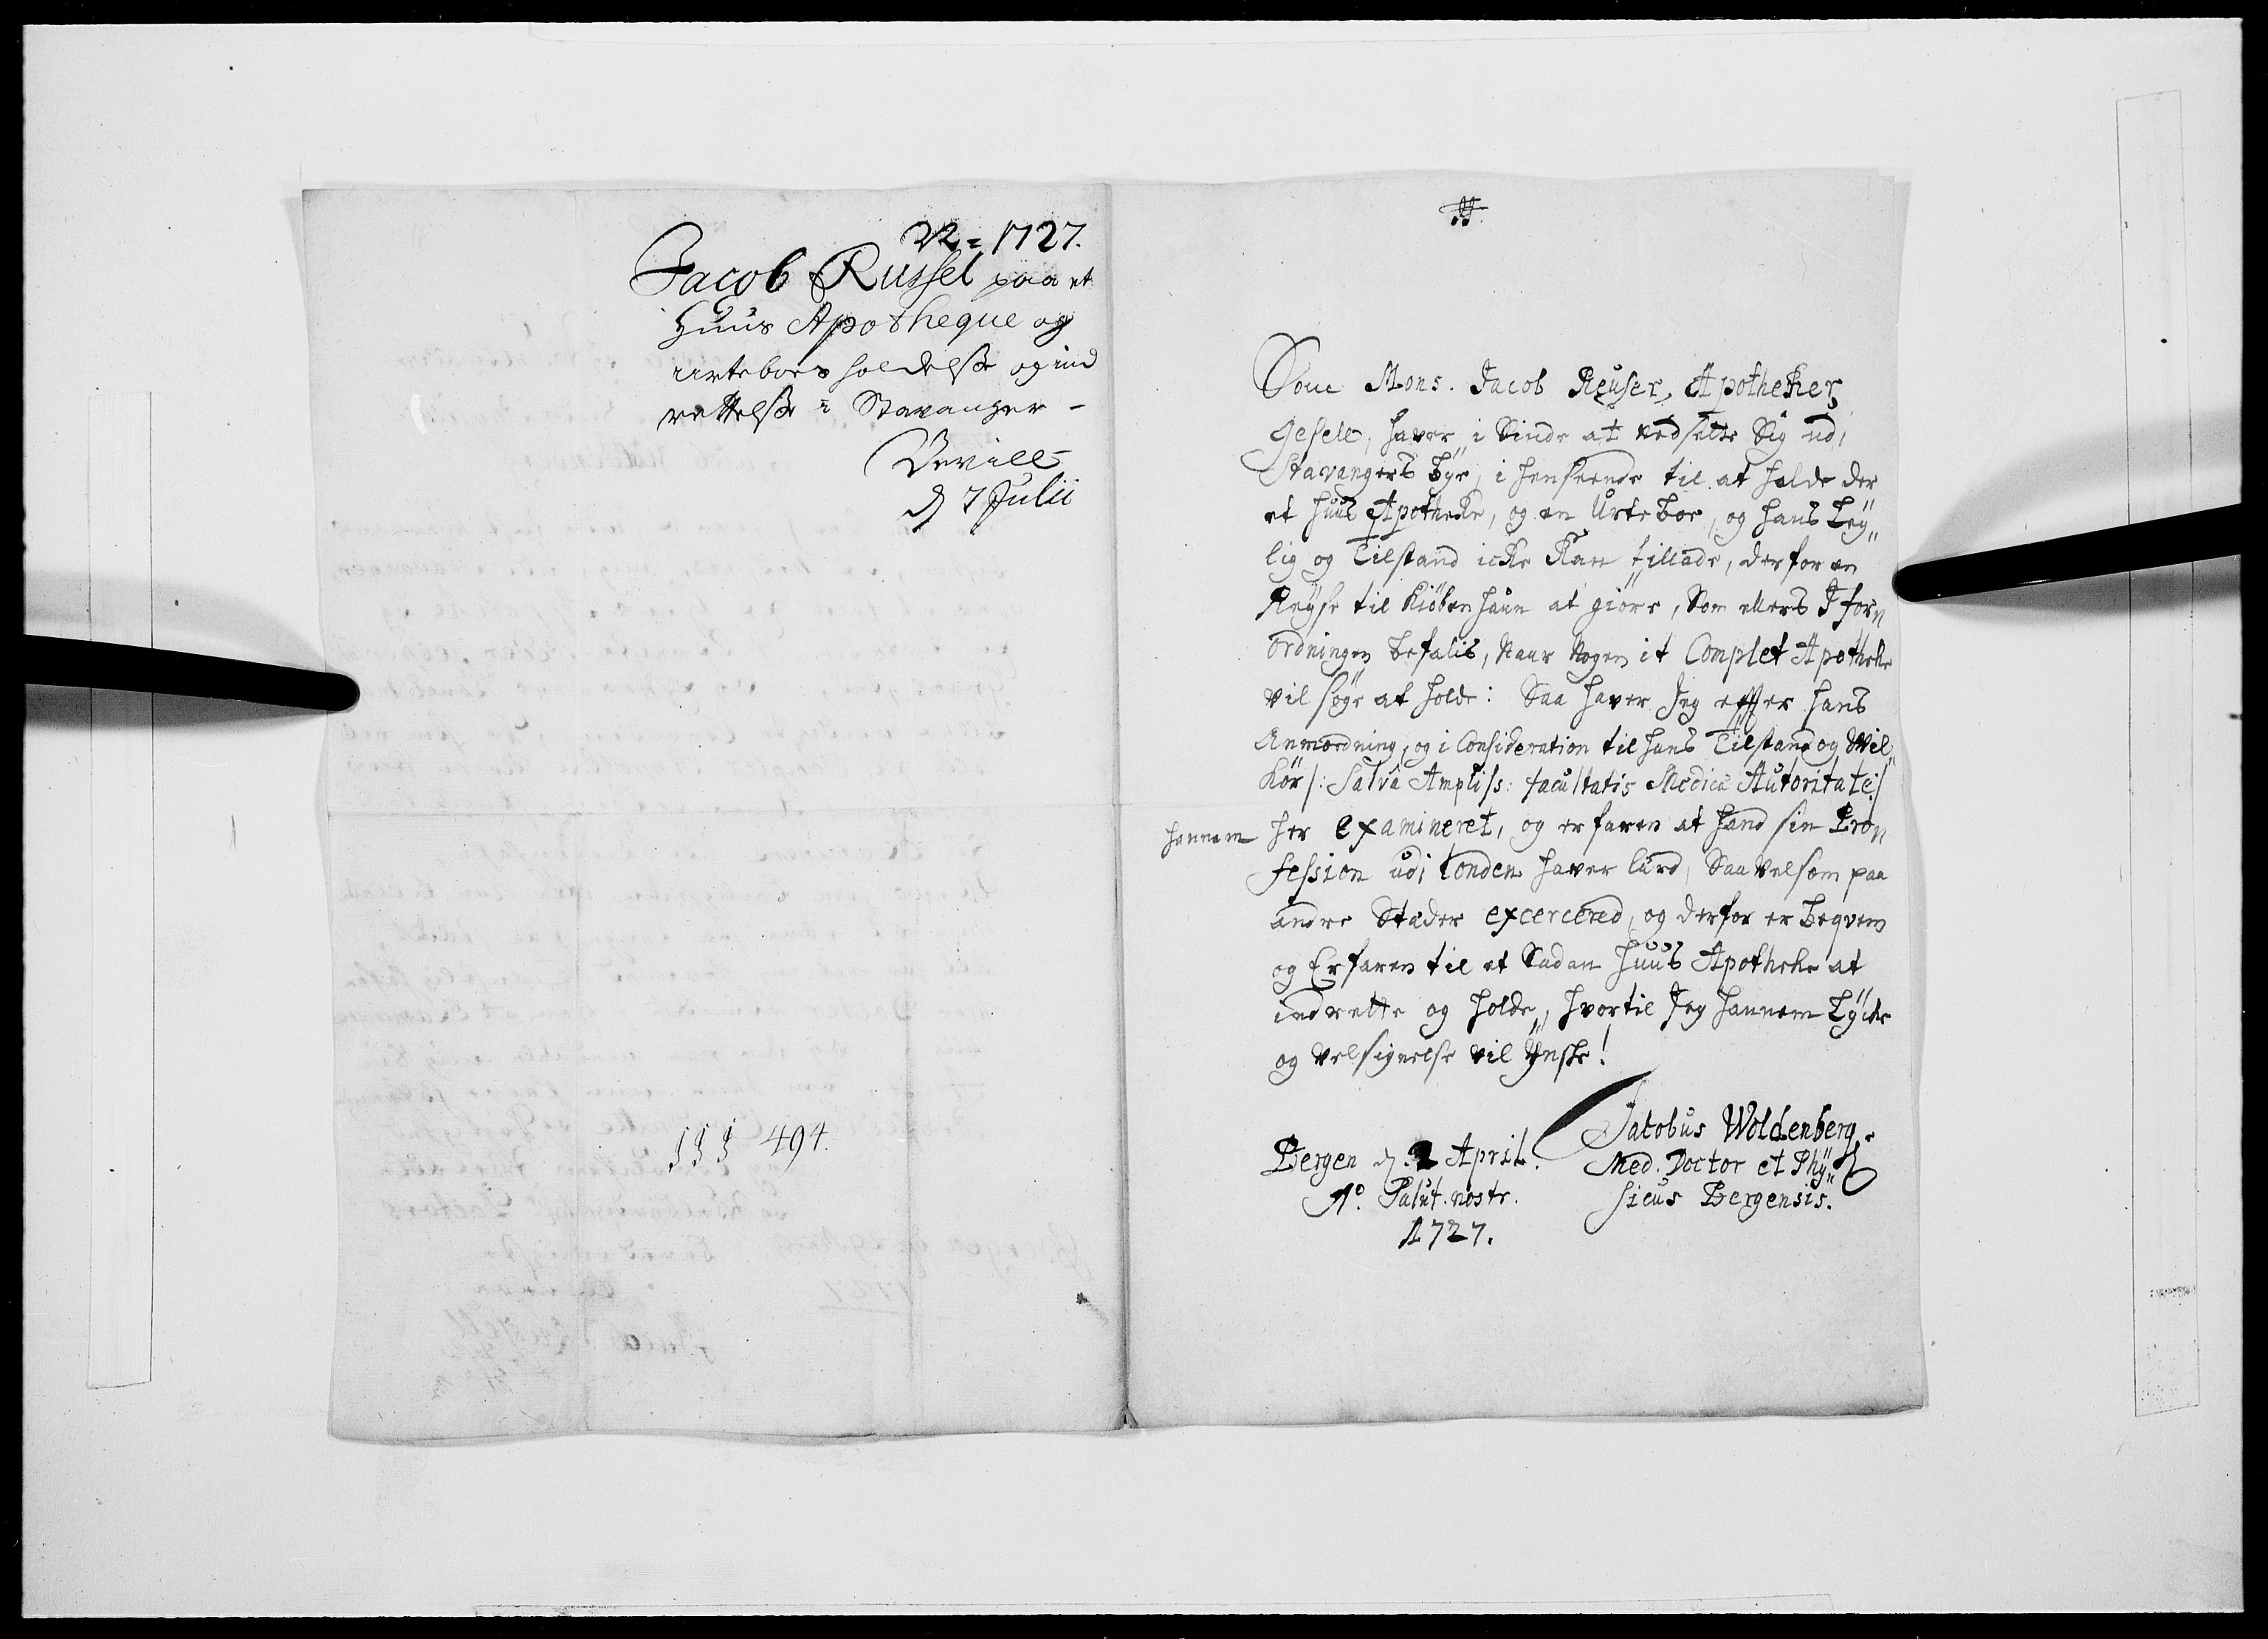 22 = 1727.
Jacob Russel paa et
Huus Apotheque og
urteboes holdelse og ind
rettelse i Stavanger -
Bevill
d 7 Julii
§§§ 494.
Som Mons. Jacob Reuser, Apotheker,
gesell, haver i Sinde at nedsette Sig udi
Stavangers bye, i henseende til at holde der
et huus Apotheke, og en Urte boe, og hans Ley„
lig og Tilstand icke Kan tillade, derfor en
Reyse til Kiöbenhaun at giöre, Som ellers I for„
ordningen befalis, Naar Nogen it Complet Apotheke
vil söge at holde: Saa haver Jeg effter hans
Anmodning, og i Consideration til hans Tilstand og Wil„
kör /: Salvâ Ampliss: facultatis Medicæ Autoritate:/
hannem her examineret, og erfaren at hand sin Pro„
fession udi Londen haver lärd, Saavelsom paa
andre Stæder excercered, og derfor er beqvem
og Erfaren til et Sadan huus Apotheke at
indrette og holde, hvortil Jeg hannem Lycke
og velsignelse vil ynske!
Jacobus Woldenberg,
Bergen d. 2 April. Med. Doctor et Phy„
Aº. Salut. nostr. sicus Bergensis.
1727.